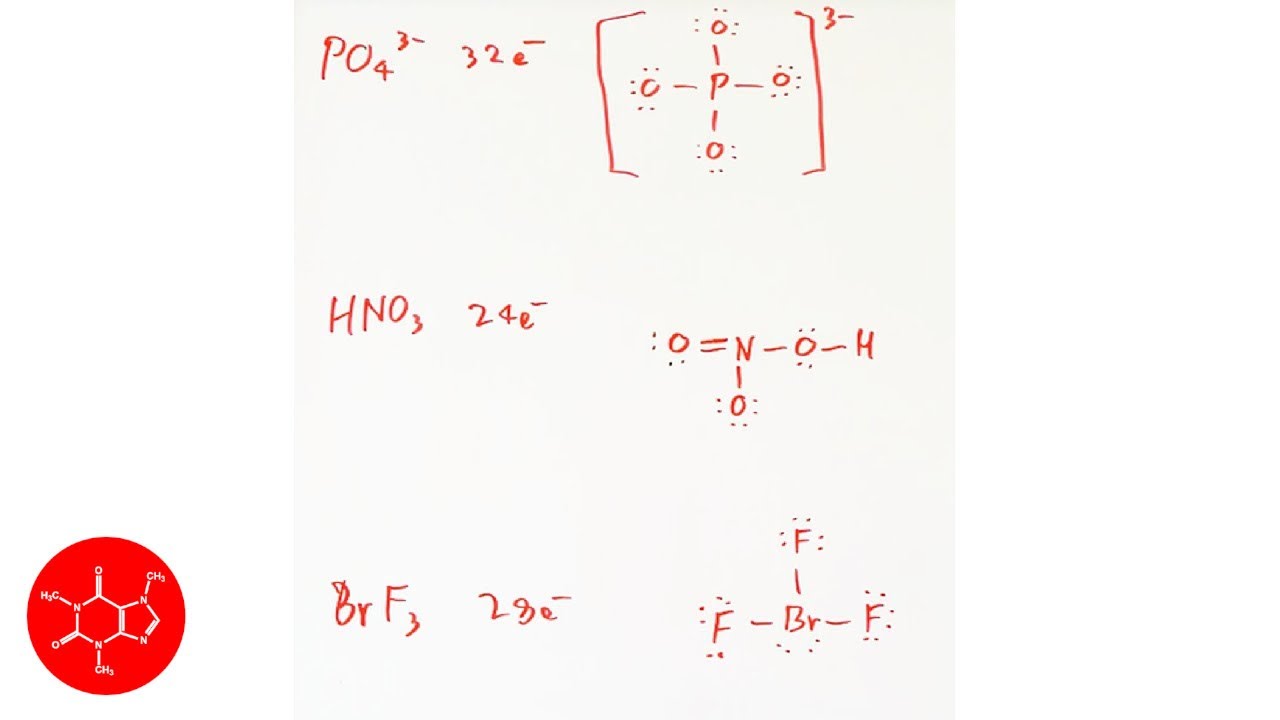 PO₄³⁻ 32e⁻
[ :O: ]³⁻
:O – P – O:
:O:
HNO₃ 24e⁻
:O = N – O – H
:O:
BrF₃ 28e⁻
:F:
:F – Br – F:
O
CH₃
H₃C
N
N
O
N
N
CH₃